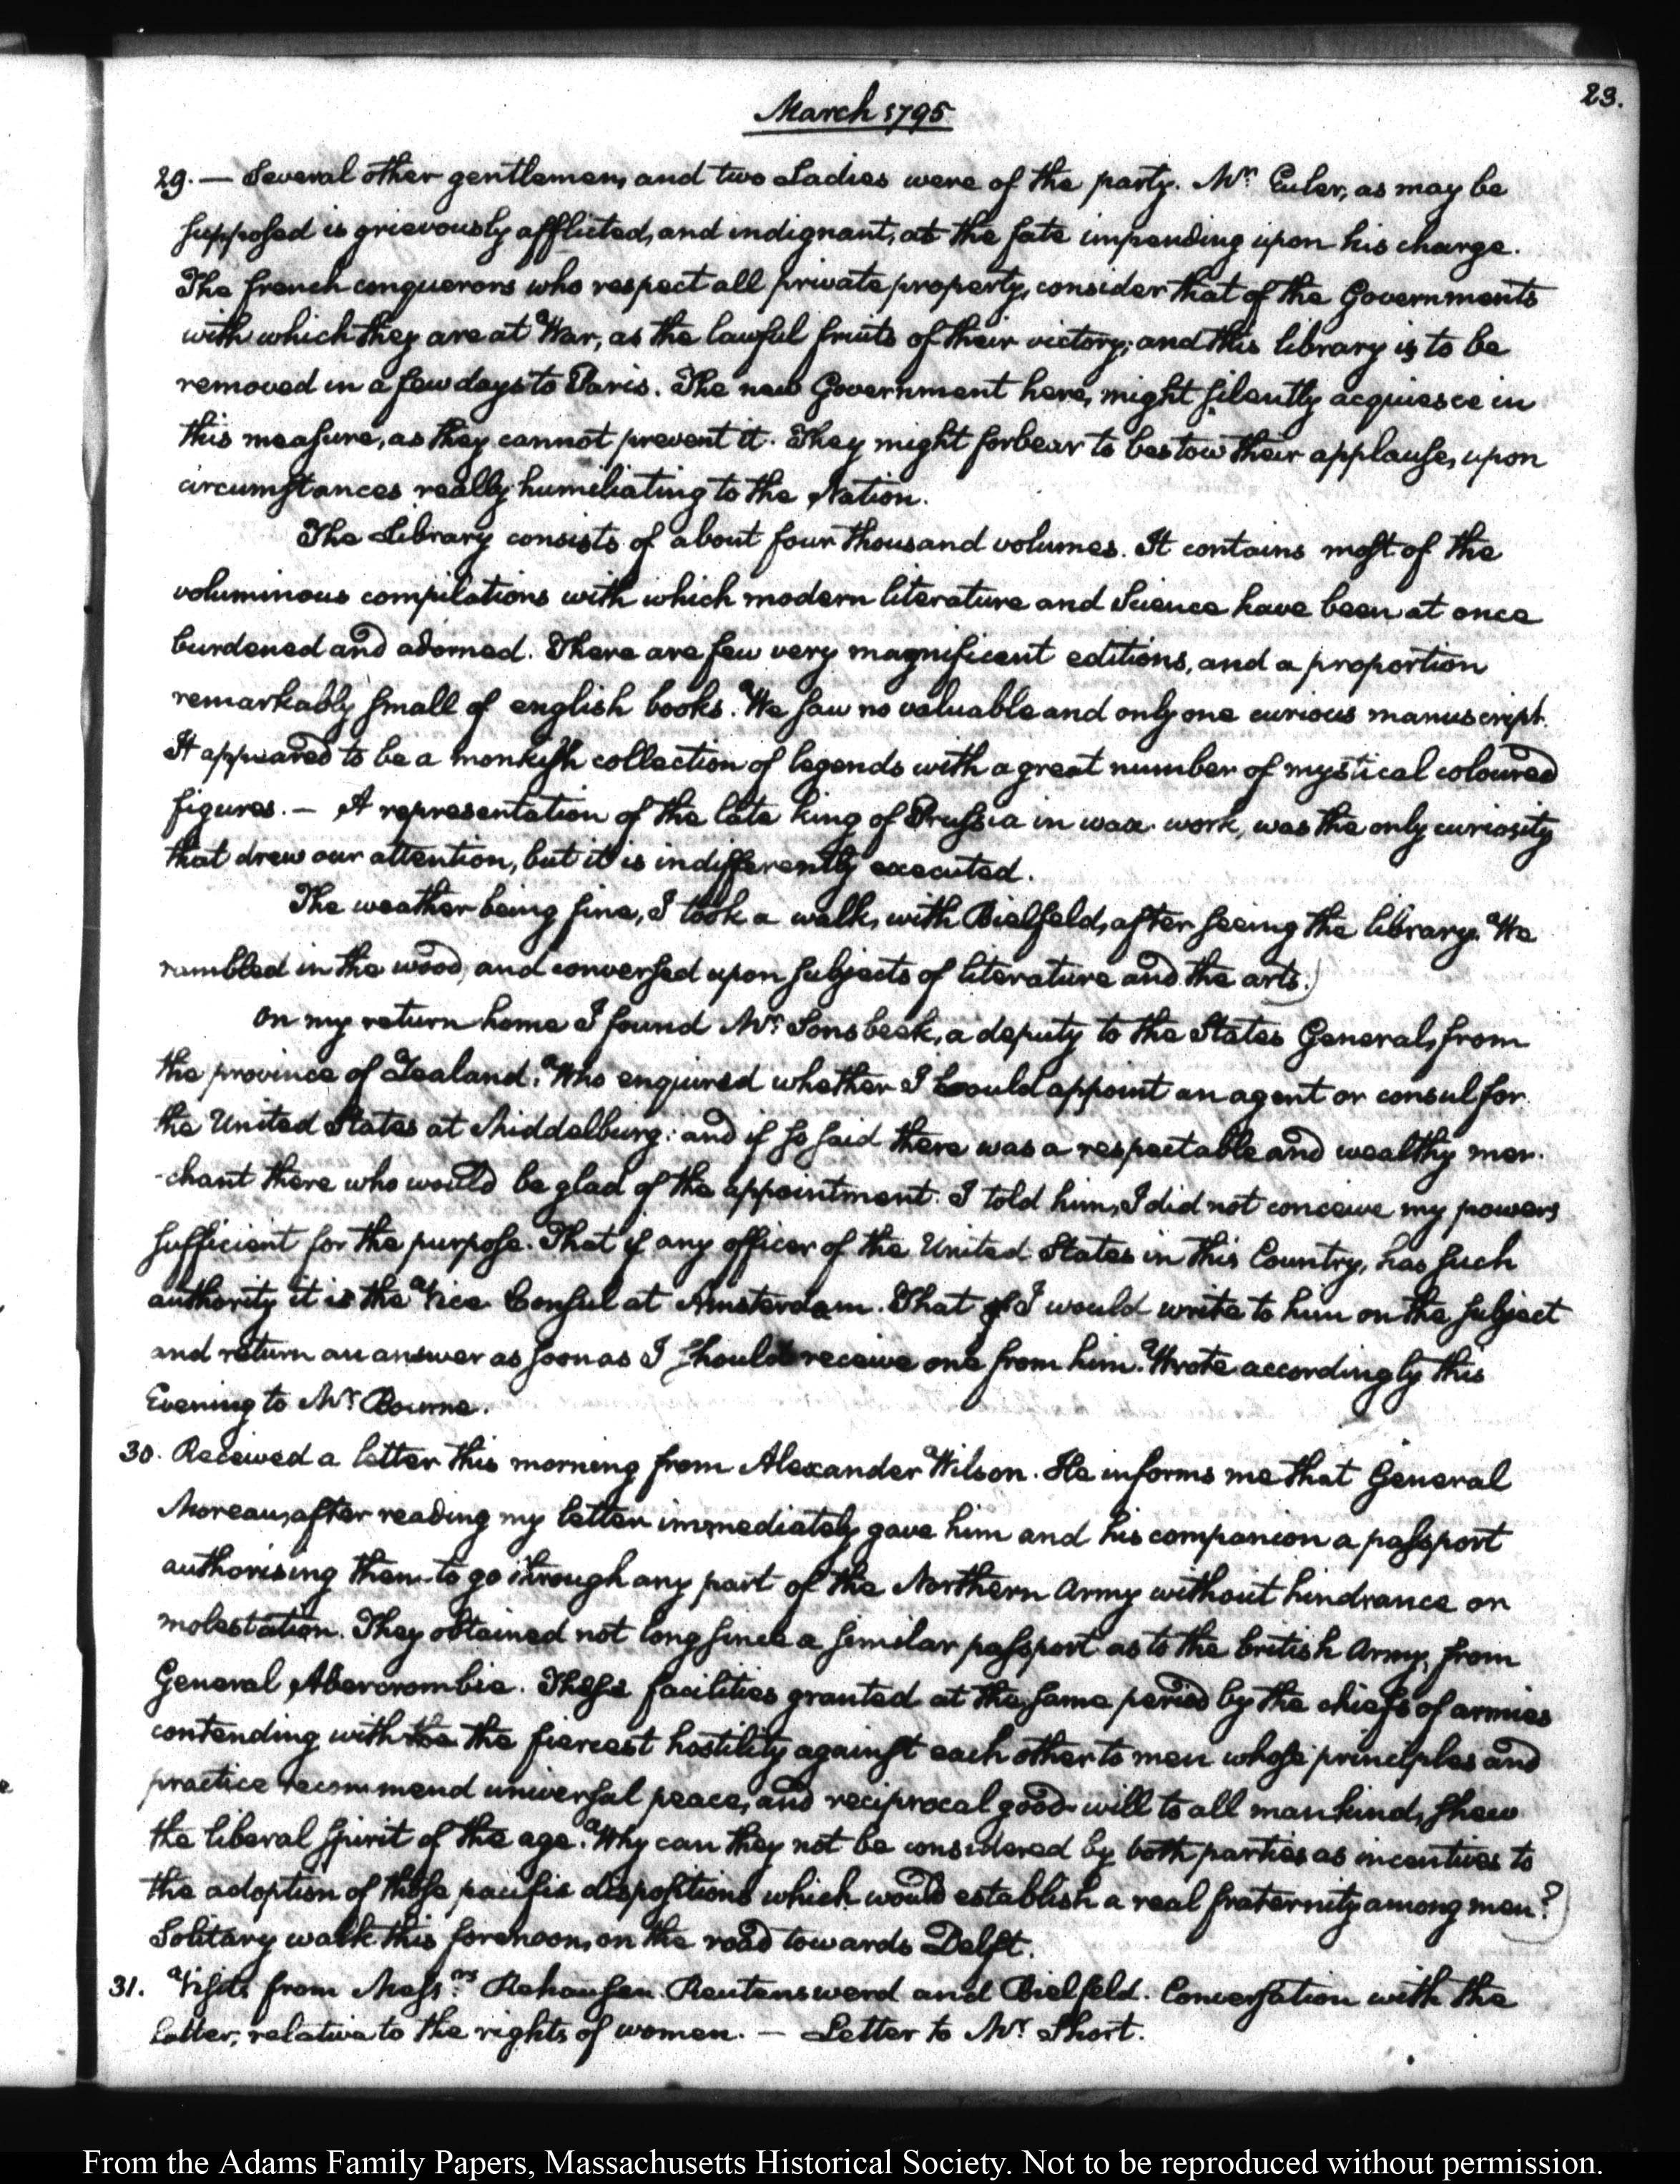 23.
March 1795
29. — Several other gentlemen, and two Ladies were of the party. Mr. Euler, as may be
supposed is grievously afflicted, and indignant, at the fate impending upon his charge.
The french conquerors who respect all private property, consider that of the Governments
with which they are at War, as the lawful fruits of their victory; and this library is to be
removed in a few days to Paris. The new Government here, might silently acquiesce in
this measure, as they cannot prevent it. They might forbear to bestow their applause, upon
circumstances really humiliating to the Nation.
The Library consists of about four thousand volumes. It contains most of the
voluminous compilations with which modern literature and Science have been at once
burdened and adorned. There are few very magnificent editions, and a proportion
remarkably small of english books. We saw no valuable and only one curious manuscript.
It appeared to be a monkish collection of legends with a great number of mystical coloured
figures. — A representation of the late king of Prussia in wax work, was the only curiosity
that drew our attention, but it is indifferently executed.
The weather being fine, I took a walk, with Bielfeld, after seeing the library. We
rambled in the wood, and conversed upon subjects of literature and the arts.)
On my return home I found Mr. Sonsbeek, a deputy to the States General, from
the province of Zealand. Who enquired whether I could appoint an agent or consul for
the United States at Middelburg: and if so said there was a respectable and wealthy mer-
-chant there who would be glad of the appointment. I told him, I did not conceive my powers
sufficient for the purpose. That if any officer of the United States in this Country, has such
authority it is the Vice Consul at Amsterdam. That if I would write to him on the subject
and return an answer as soon as I should receive one from him. Wrote accordingly this
Evening to Mr. Bourne.
30. Received a letter this morning from Alexander Wilson. He informs me that General
Moreau, after reading my letter immediately gave him and his companion a passport
authorising them to go through any part of the Northern Army without hindrance or
molestation. They obtained not long since a similar passport as to the british Army, from
General Abercrombie. These facilities granted at the same period by the chiefs of armies
contending with the the fiercest hostility against each other to men whose principles and
practice recommend universal peace, and reciprocal good will to all mankind, shew
the liberal spirit of the age. Why can they not be considered by both parties as incentives to
the adoption of those pacific dispositions which would establish a real fraternity among men?)
Solitary walk this forenoon, on the road towards Delft.
31. Visits from Messrs. Rehausen. Reutersward and Bielfeld. Conversation with the
latter, relative to the rights of women. — Letter to Mr. Short.
From the Adams Family Papers, Massachusetts Historical Society. Not to be reproduced without permission.